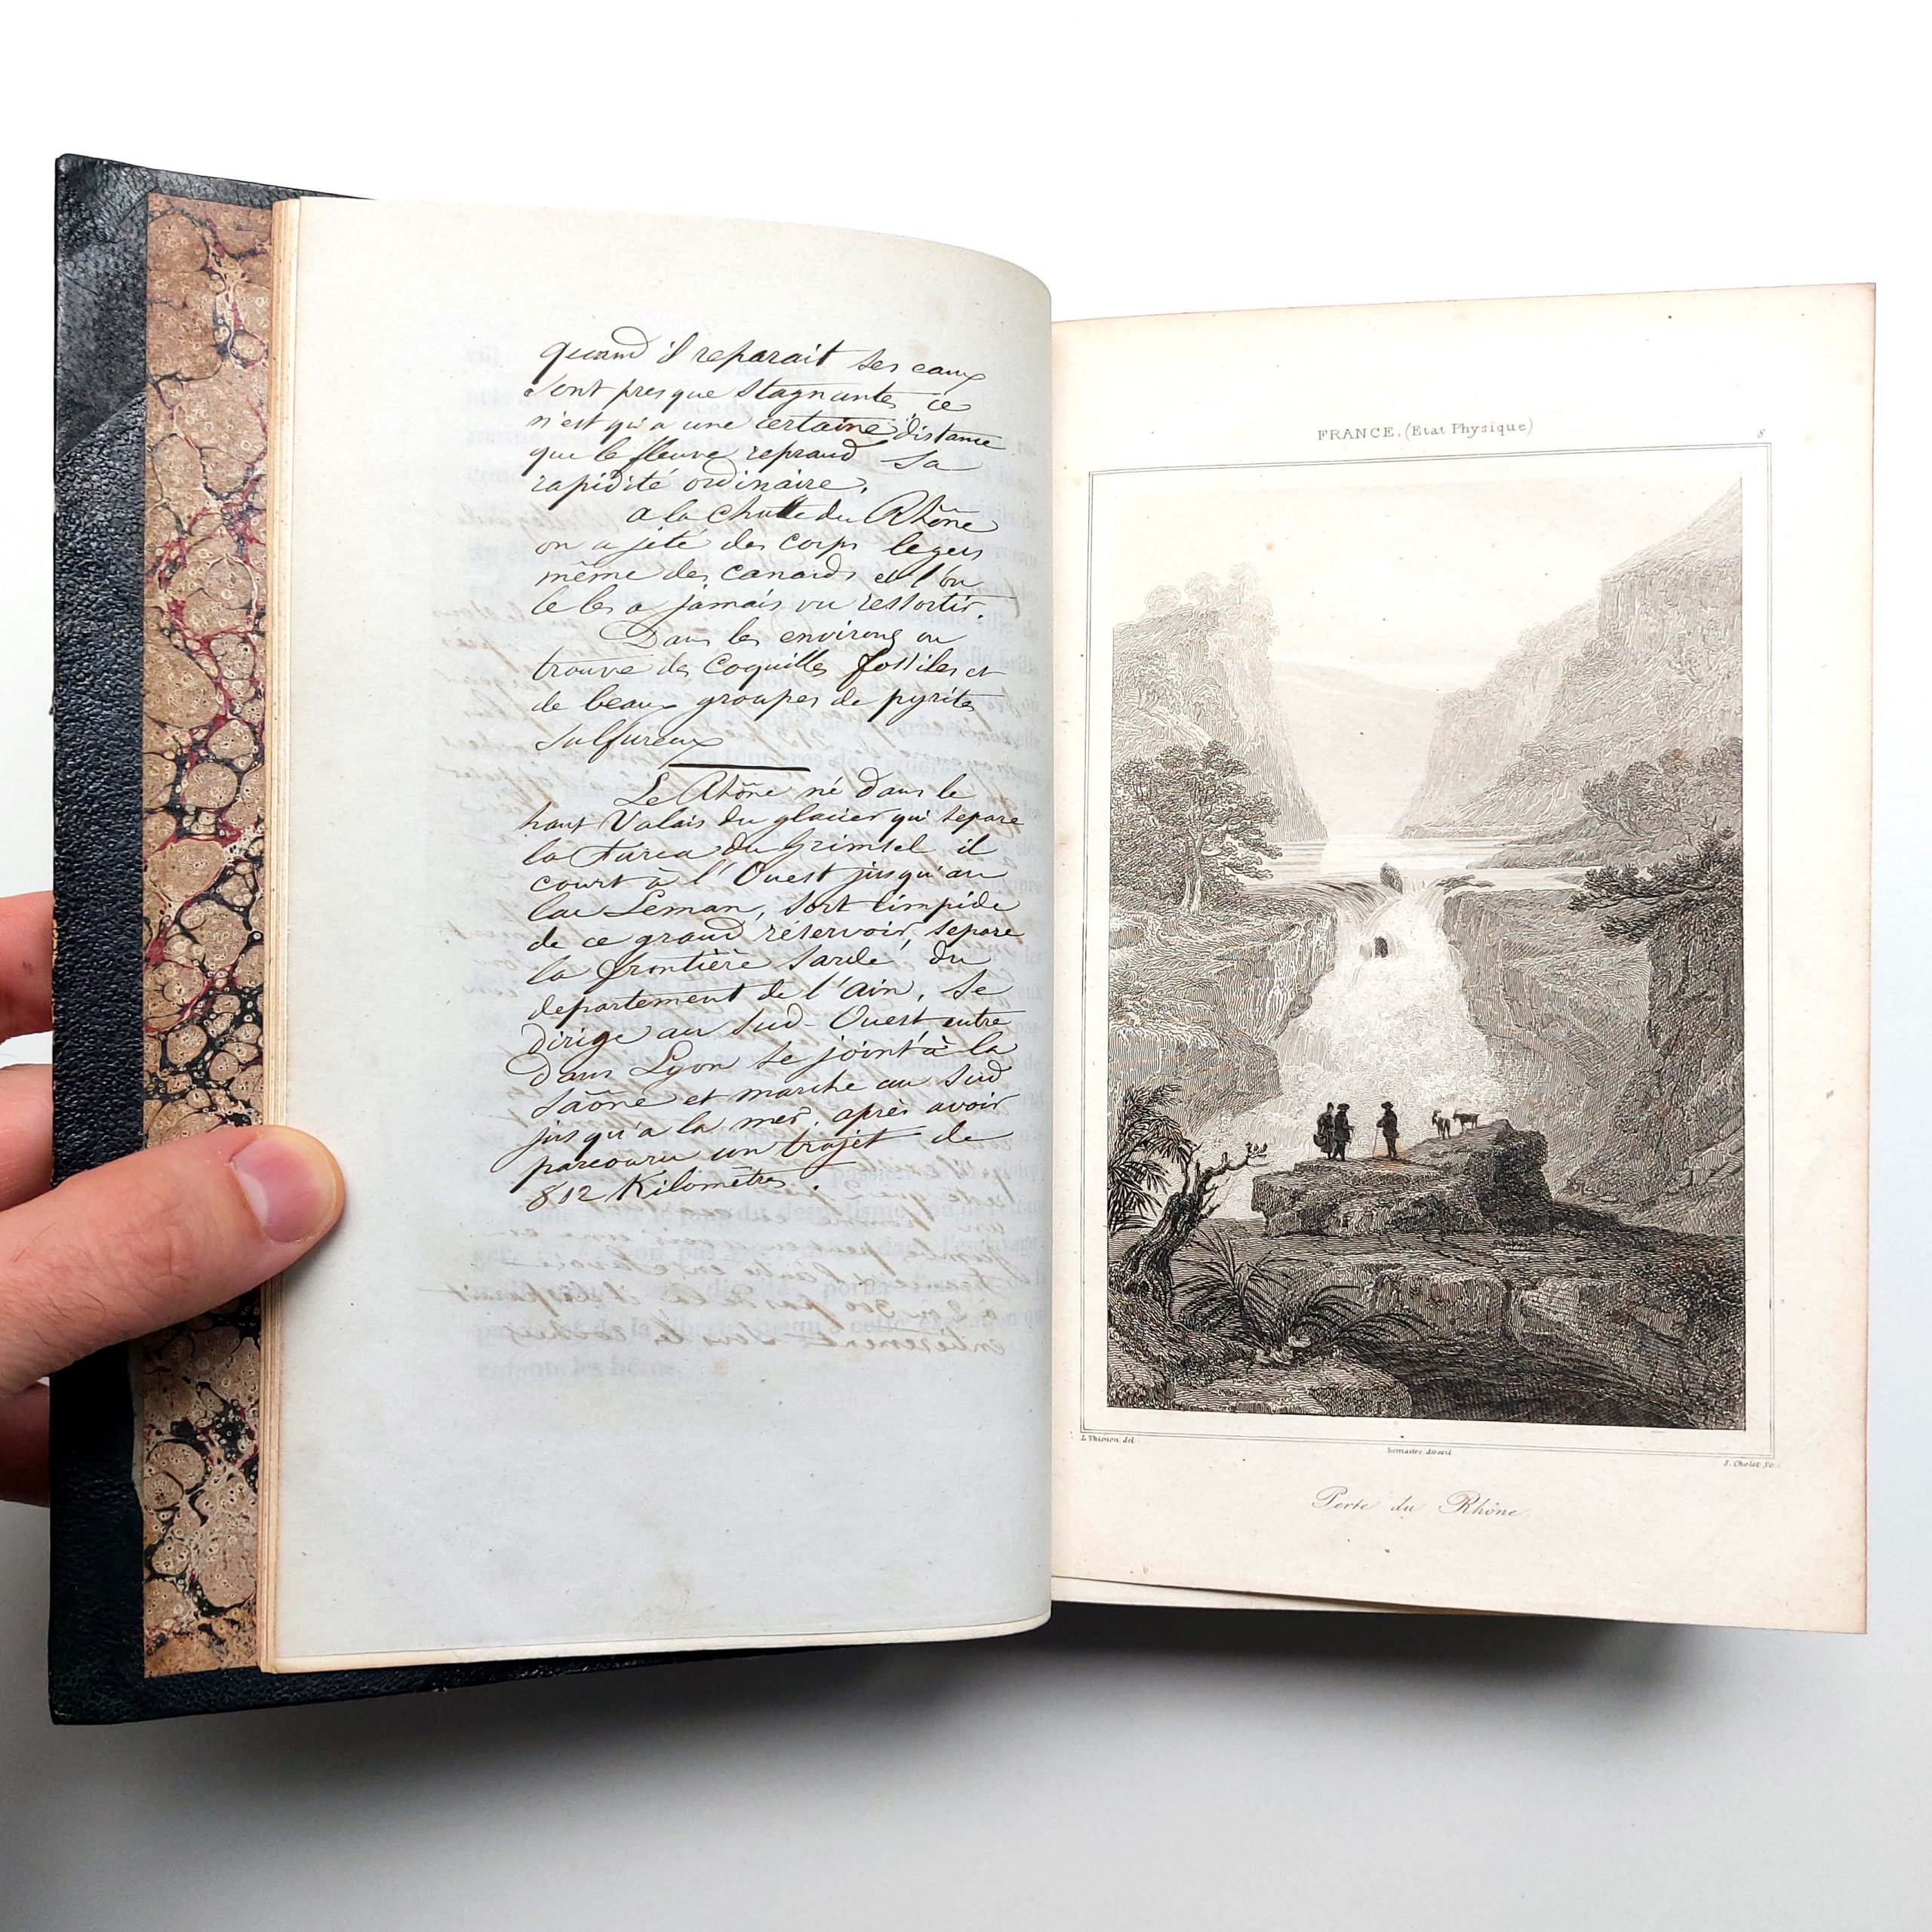 quand il reparait ses eaux
sont presque stagnantes ce
n'est qu'a une certaine distance
que le fleuve reprand sa
rapidité ordinaire.
a la chutte du Rhône
on a jeté des corps legers
même des canards et l'on
le les a jamais vu ressortir.
Dans les environs on
trouve des Coquilles fossiles et
de beaux groupes de pyrites
sulfureux
Le Rhône né dans le
haut Valais du glacier qui separe
la Furca du Grimsel il
court à l'Ouest jusqu'au
lac Leman, sort limpide
de ce grand réservoir, separe
la frontière sarde du
departement de l'ain, se
dirige au sud-Ouest entre
dans Lyon se joint à la
saône et marche au sud
jusqu'a la mer, après avoir
parcouru un trajet de
812 Kilomètres.
FRANCE. (Etat Physique)
8
L. Thienon, del
Lemaitre direxit
J. Cholet Sc.
Perte du Rhône